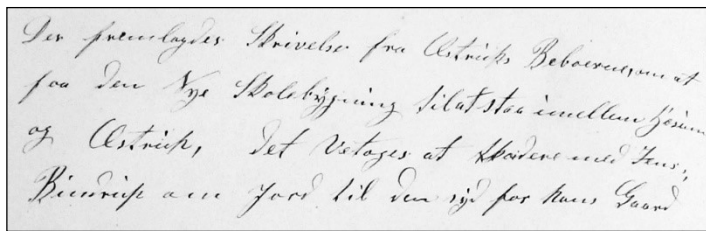 Der fremlagdes Skrivelse fra Østrups Beboerne, om at
faa den Nye Skolebygning til at staa imellem Gjesing
og Østrup, det Vetoges at
Bindrup om Jord til den syd for hans Gaard